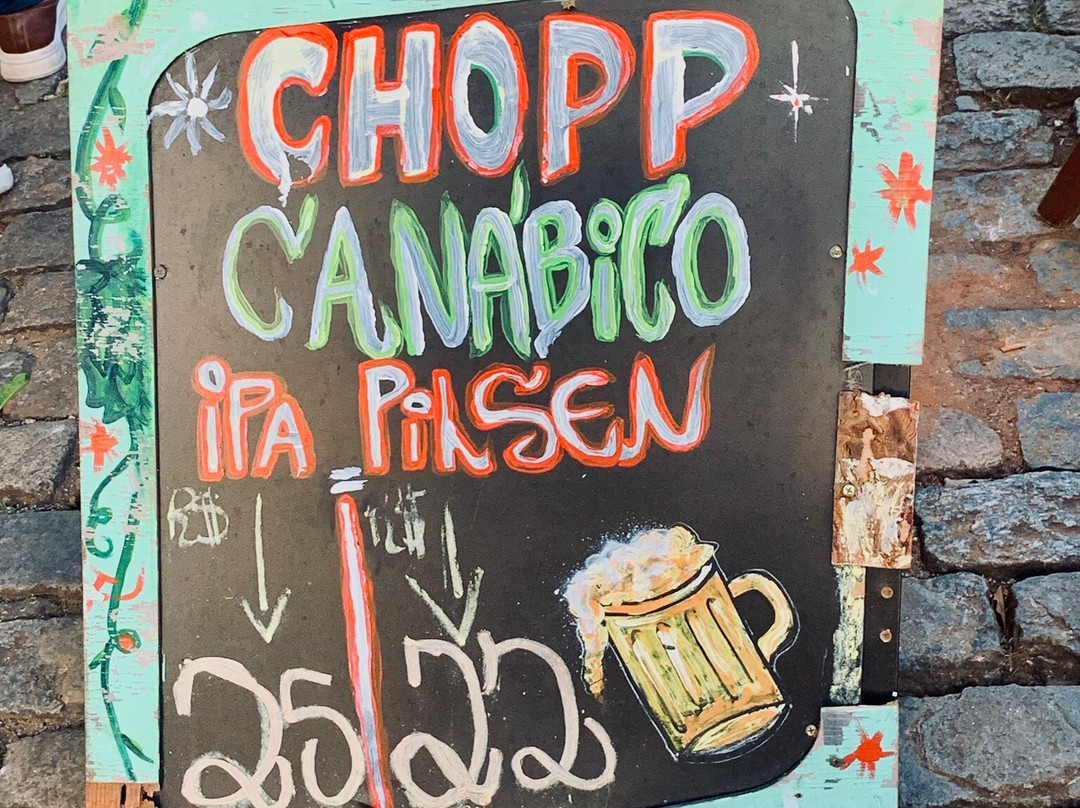 CHOPP
CANÁBiCO
iPA PiLSEN
R$ R$
25 22